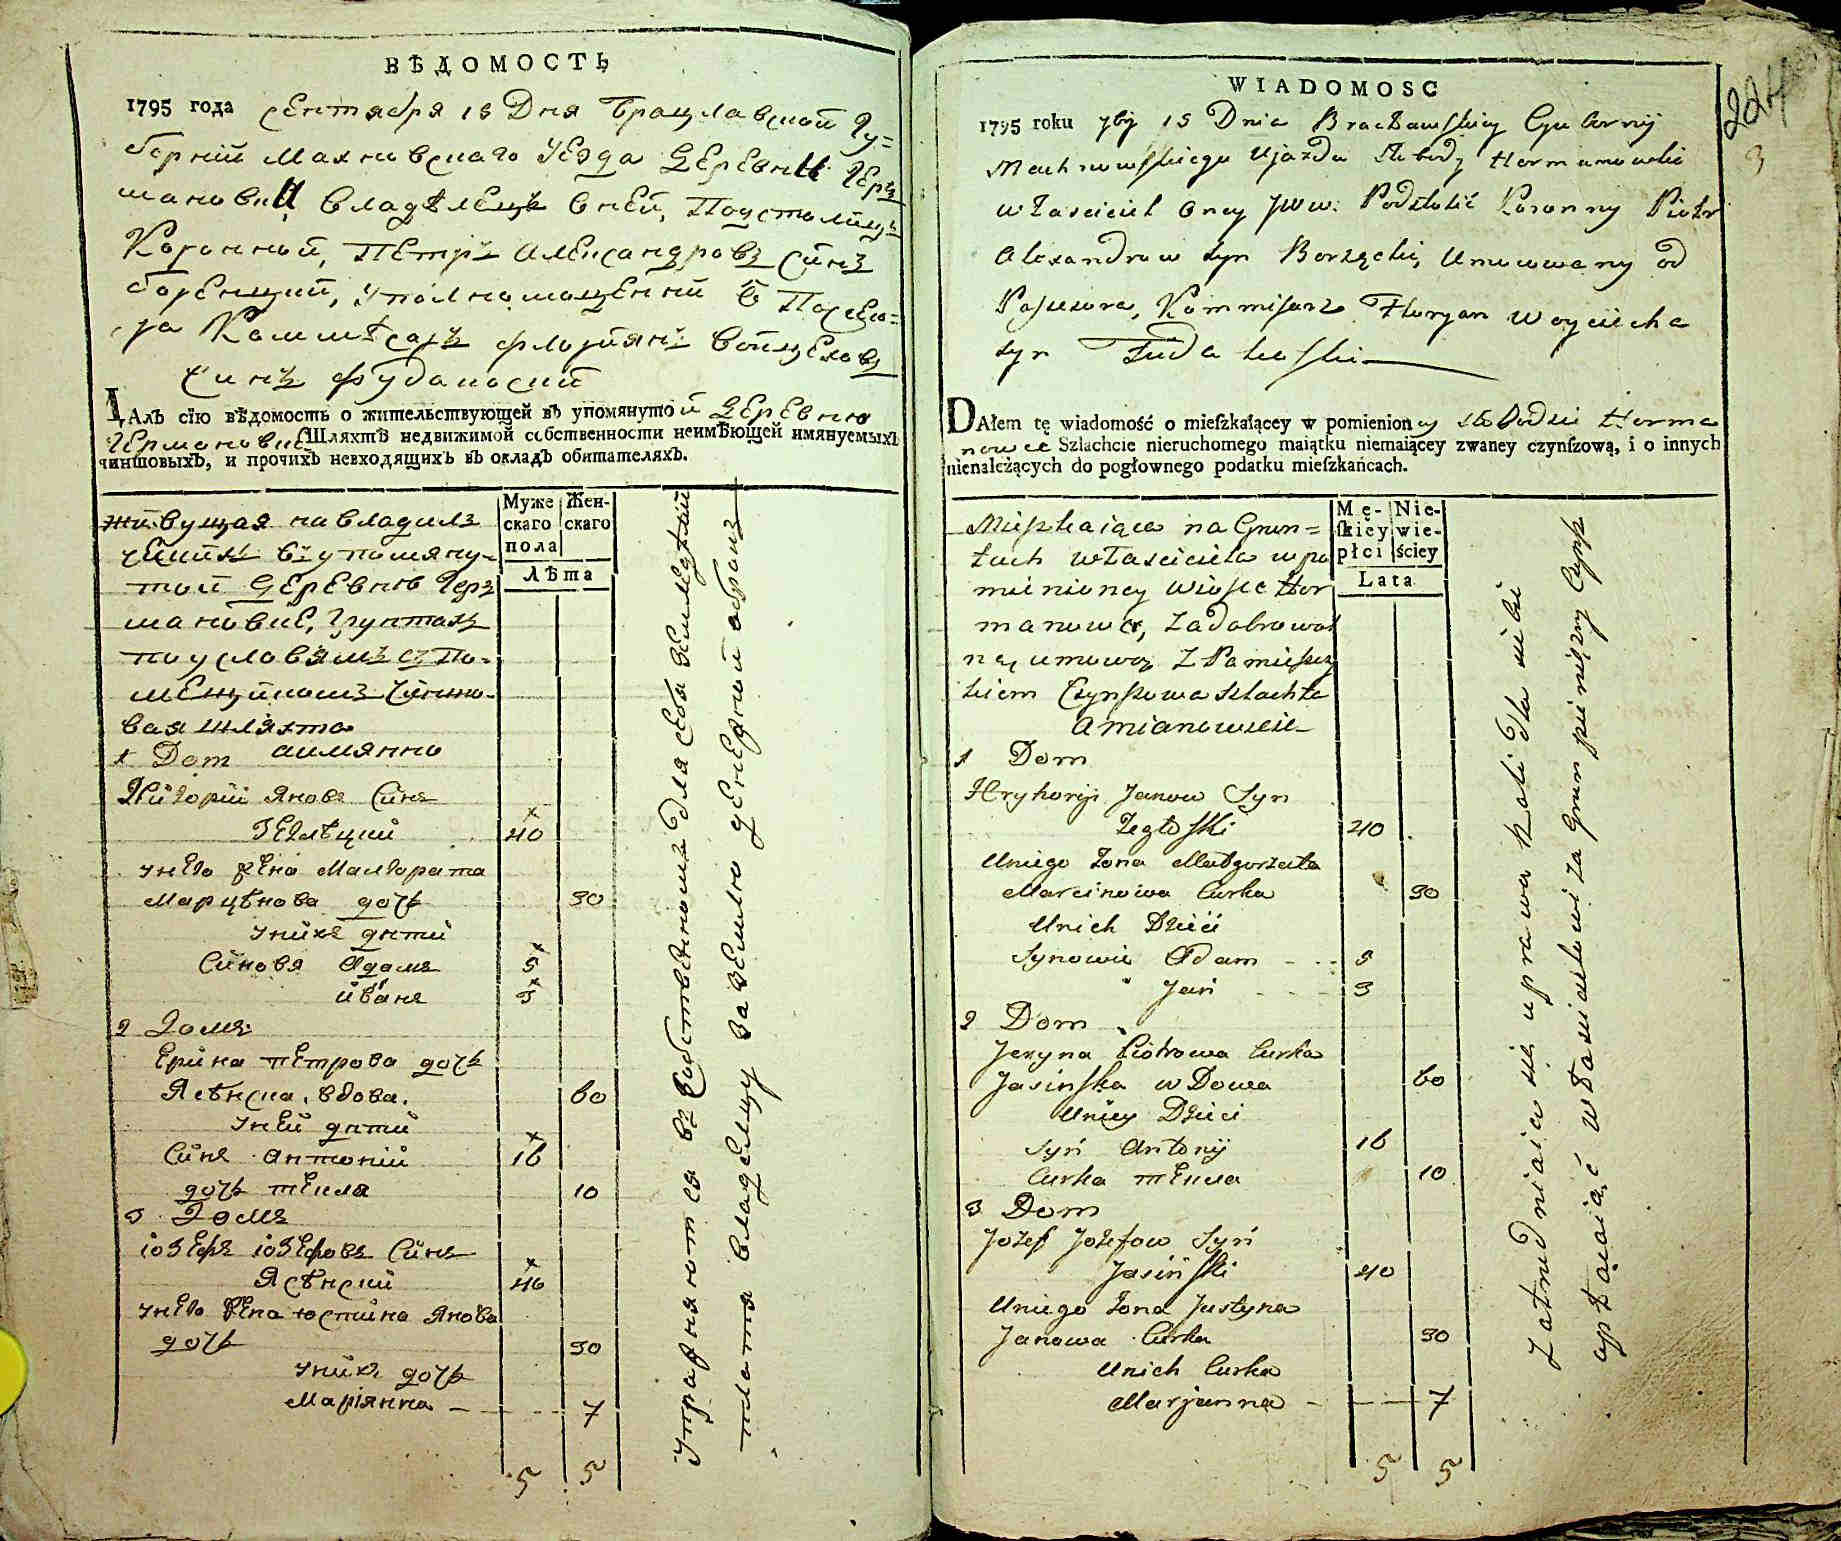 ВѢДОМОСТЬ
1795 года сентября 15 Дня Брацлавской Гу=
берний Махновскаго Уезда Деревни Гер
мановки Владѣлецъ вней, Подстолий
Коронной, Петръ Александровъ Синъ
боренцкий, уполномоценний
Коммѣсаръ Флориянъ Войцеховъ
Синъ Фудаковский
ДАлъ сїю вѣдомость о жительствующей въ упомянутой Деревню
Германовке Шляхтѣ недвижимой собственности неимѣющей имянуемыхъ
чиншовыхъ, и прочихъ невходящихъ въ окладъ обитателяхъ.
Муже Жен-
скаго скаго
пола
Лѣта
живущая на владил
въ упомяну-
той Деревнѣ Гер
мановке, грунтахъ
по условиямъ съ По-
мещикомъ Чиншо-
вая шляхта
аимянно
1 Dom
Григорий Яновъ Синъ
40
унего жена Малгората
Марцѣнова дочь 30
унихъ дѣти
Синовя Адамъ 5
Иванъ 3
2 Домъ
Ерина Петрова дочь
Ясѣнска, вдова. 60
уней дѣти
Синъ Антоний 16
дочь Текля 10
3 Домъ
Іозефъ Іозефовъ Синъ
Ясѣнский 40
унего жена Юстина Янова
дочь 30
унихъ дочь
Мариянна - 7
5 5
Упражняются въ
платя владелцу за землю денежной
WIADOMOSC
224
3
1795 roku 7bŗ 15 Dnia Bracławskiey Gubernij
Machnowskiego Ujazdu Słobody Hermanowki
właściciel oney JWW. Podstolić Koronny Piotr
Alexandrow syn Borzęcki, Umocowany od
Kommisarz Floryan Woyciecha
syn Fudakoſki
DAłem tę wiadomość o mieſzkaiącey w pomienioney słobodzie Herma
nowce Szlachcie nieruchomego maiątku niemaiącey zwaney czynſzową, i o innych
nienależących do pogłownego podatku mieſzkańcach.
Mę- Nie-
ſkiey wie-
płci ściey
Lata
Mieszkaiąca na Grun=
tach właściciela w po
mienioney wiosce Her
manowce, za dobrowol
ną umową z Pomieszcz
kiem Czynszowa szlachta
a mianowicie
1 Dom
Hryhoryi Janow Syn
Zegłoſki 40
Uniego Żona Małgorzata
Marcinowa Curka 30
Unich Dzieci
Synowie Adam - - - 5
Jan - - - 3
2 Dom
Jeryna Piotrowa Curka
Jasinſka wDowa 60
Uniey Dzieci
Syn Antony 16
Curka Текля 10
3 Dom
Jozef Jozefow Syn
Jasinſki 40
Uniego Żona Justyna
Janowa Curka 30
Unich Curka
Marjanna - - - 7
5 5
Zatrudniaią się uprawą Roli dla siebie
opłaiaić właścicielowi za Grun pieniężny Czynsz